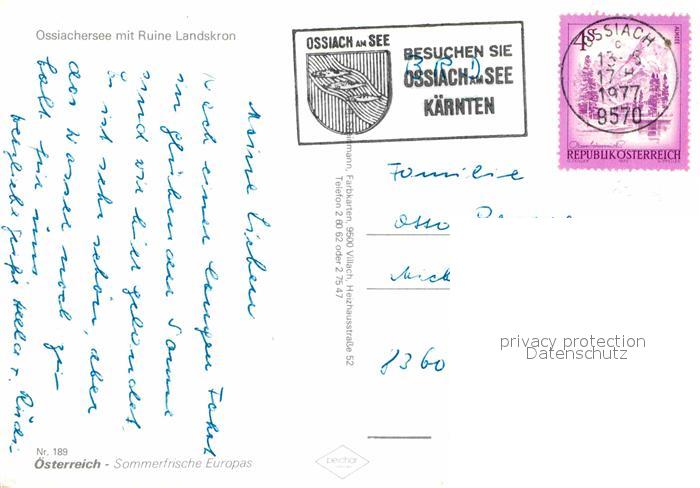 Ossiachersee mit Ruine Landskron
Meine Lieben
Nach einer langen Fahrt
in glühender Sonne
sind wir hier gelandet.
Es ist sehr schön, aber
das Wasser noch zu
kalt für uns
herzliche Grüße Hella u. Rudi
Nr. 189
Österreich - Sommerfrische Europas
OSSIACH AM SEE
BESUCHEN SIE
OSSIACH AM SEE
KÄRNTEN
BRD
4 S
OSSIACH
1977
9570
REPUBLIK ÖSTERREICH
Farbkarten, 9500 Villach, Heizhausstraße 52
Telefon 2 60 62 oder 2 75 47
Familie
Otto
8360
privacy protection
Datenschutz